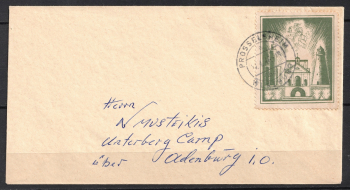 PROSSELSHEIM
Herrn
N Musteikis
Unterberg Camp
über Oldenburg i. O.